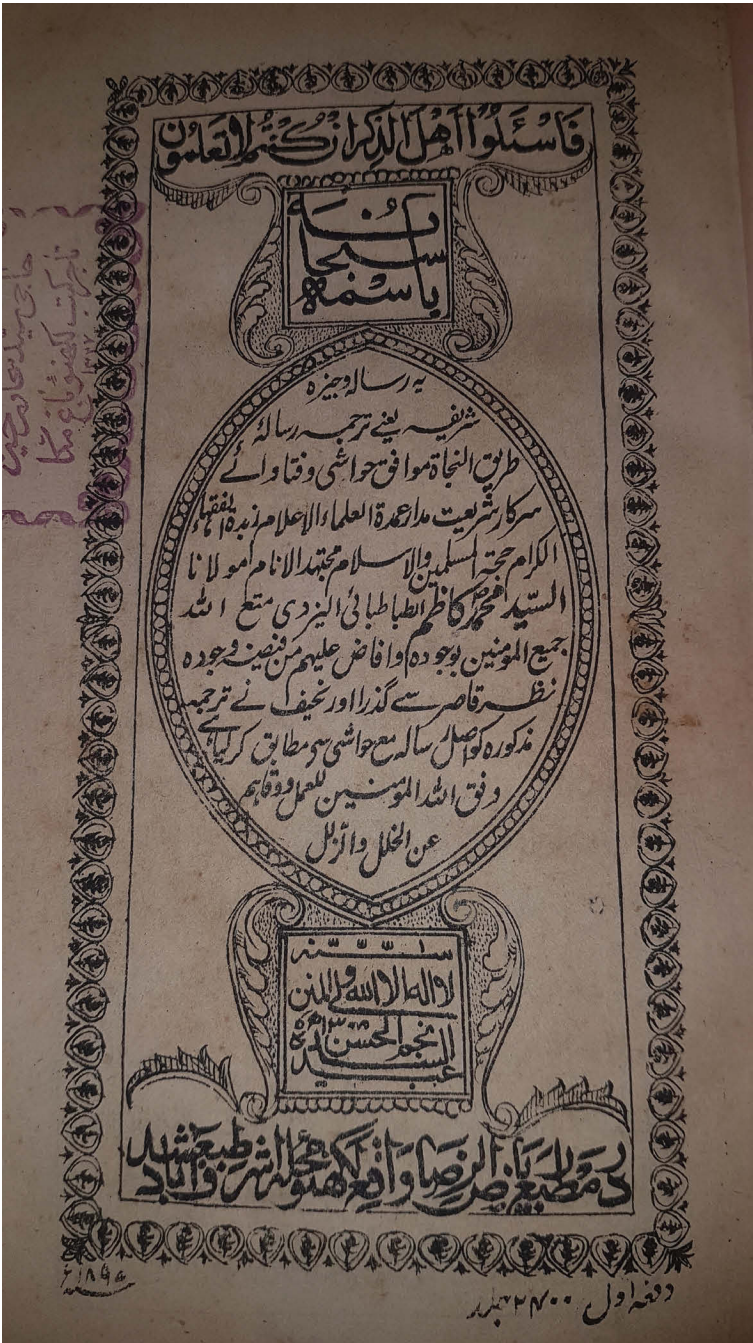 فَاسْئَلُوْا اَهْلَ الذِّكْرِ اِنْ كُنْتُمْ لَا تَعْلَمُوْنَ
باسمه
سبحانه
یہ رسالہ وجیزہ
شریفہ یعنے ترجمہ رسالۂ
طریق النجاة موافق حواشی وفتاوائے
سرکار شریعت مدار عمدة العلماء الاعلام زبدة الفقہاء
الکرام حجة المسلمین والاسلام مجتہد الانام مولانا
السیّد محمد کاظم الطباطبائی الیزدی متع اللہ
جمیع المؤمنین بوجودہ وافاض علیہم من فیضہ وجودہ
نظر قاصر سے گذرا اور نحیف نے ترجمہ
مذکورہ کو اصل رسالہ مع حواشی سے مطابق کرلیا ہے
وفق اللہ المومنین للعمل ووقاہم
عن الخلل والزلل
لا الہ الا اللہ
عبدہ السید نجم الحسن
در مطبع ریاض الرضا واقع لکھنؤ محلہ اشرف آباد طبع شد
دفعہ اول ۲۴۰۰ جلد
تاجر کتب لکھنؤ باغ مکا